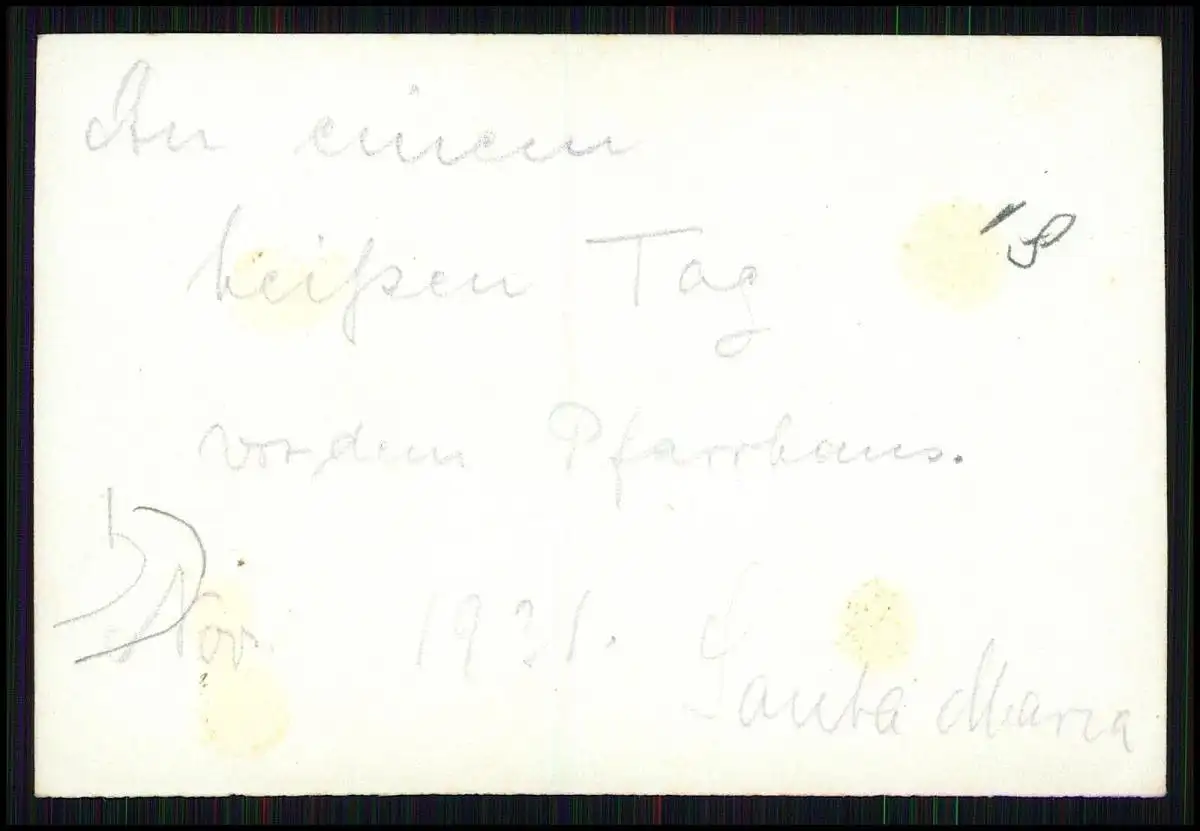 An einem
heißen Tag
vor dem Pfarrhaus.
Nov. 1931. Santa Maria